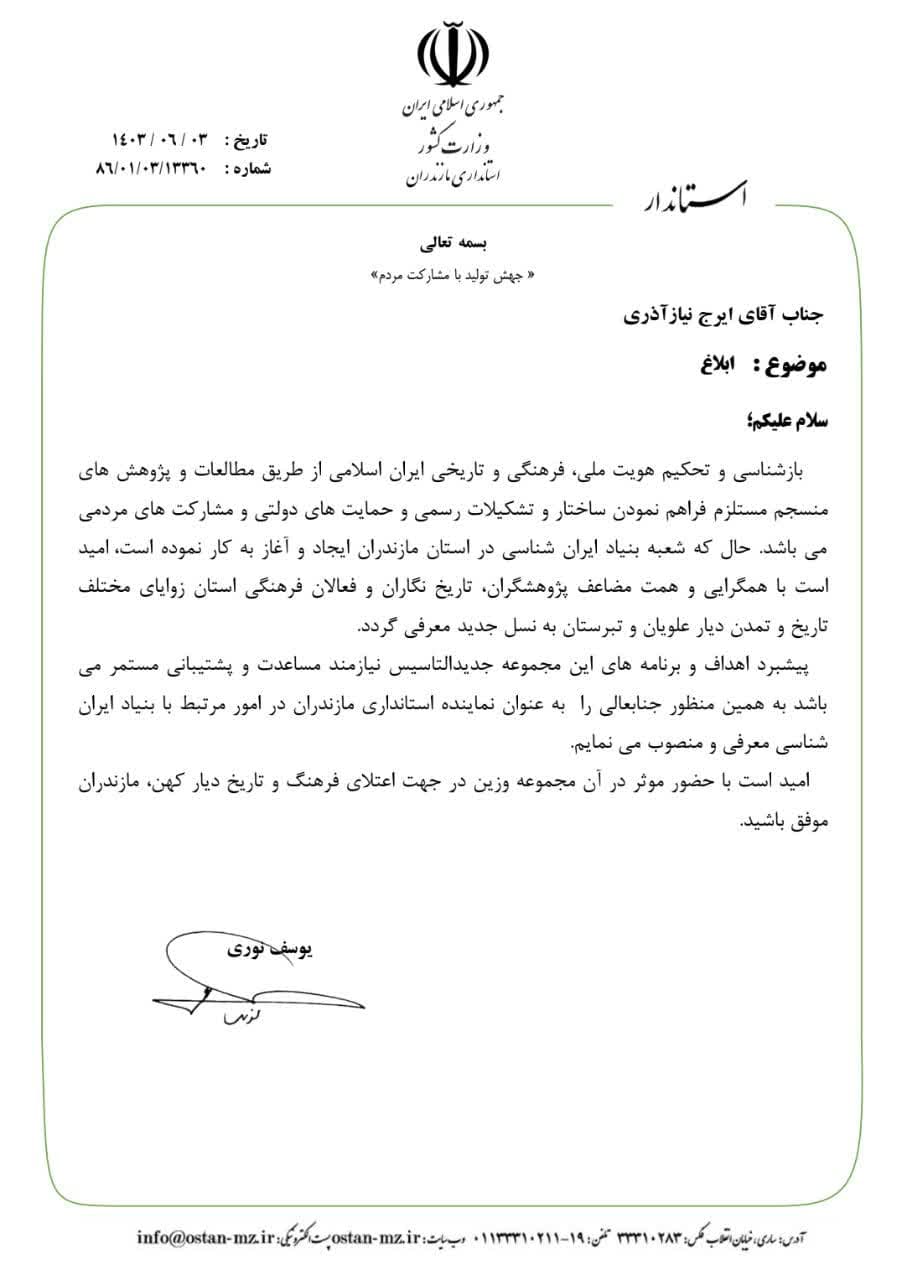 جمهوری اسلامی ایران
وزارت کشور
استانداری مازندران
تاریخ : ۱٤۰۳ / ۰٦ / ۰۳
شماره : ۸٦/۰۱/۰۳/۱۳۳٦۰
استاندار
بسمه تعالی
« جهش تولید با مشارکت مردم»
جناب آقای ایرج نیازآذری
موضوع : ابلاغ
سلام علیکم؛
بازشناسی و تحکیم هویت ملی، فرهنگی و تاریخی ایران اسلامی از طریق مطالعات و پژوهش های
منسجم مستلزم فراهم نمودن ساختار و تشکیلات رسمی و حمایت های دولتی و مشارکت های مردمی
می باشد. حال که شعبه بنیاد ایران شناسی در استان مازندران ایجاد و آغاز به کار نموده است، امید
است با همگرایی و همت مضاعف پژوهشگران، تاریخ نگاران و فعالان فرهنگی استان زوایای مختلف
تاریخ و تمدن دیار علویان و تبرستان به نسل جدید معرفی گردد.
پیشبرد اهداف و برنامه های این مجموعه جدیدالتاسیس نیازمند مساعدت و پشتیبانی مستمر می
باشد به همین منظور جنابعالی را به عنوان نماینده استانداری مازندران در امور مرتبط با بنیاد ایران
شناسی معرفی و منصوب می نمایم.
امید است با حضور موثر در آن مجموعه وزین در جهت اعتلای فرهنگ و تاریخ دیار کهن، مازندران
موفق باشید.
یوسف نوری
آدرس: ساری، خیابان انقلاب فکس: ۳۳۳۱۰۲۸۳ تلفن: ۱۹-۰۱۱۳۳۳۱۰۲۱۱ وب سایت: ostan-mz.ir پست الکترونیکی: info@ostan-mz.ir